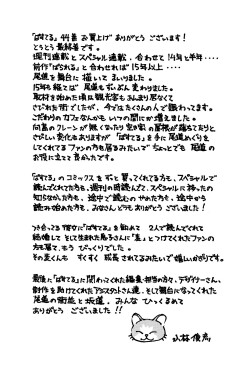 「ぱすてる」44巻 お買上げ ありがとう ございます！
とうとう 最終巻です。
週刊連載と スペシャル連載、合わせて 14年と半年・・・・
前作「ぱられる」と合わせれば 15年以上・・・・
尾道を 舞台に 描いて まいりました。
15年も経てば 尾道も ずいぶん 変わりました。
取材を始めた頃は 観光客も あんまり居なくて
さびれた街でしたが、今では たくさんの人で 賑わってます。
こだわりのカフェなんかも いつの間にか増えました。
向島の クレーンが 無くなったり 空き家の 屋根が 落ちてたりと
さびしい変化もありますが 「ぱすてる」を 手に 尾道めぐりを
してくれてる ファンの方も居るみたいで ちょっとでも 尾道の
お役に立てて 良かったです。
「ぱすてる」の コミックスを ずっと 買ってくれてる方も、スペシャルで
読んでくれてた方も、週刊の時 読んでて、スペシャルに 移ったの
知らなかった方も、途中で 読むの やめた方も、途中から
読み始めた方も、みなさん どうも ありがとう ございました！
読んでくれて
結婚して そして 生まれた 息子さんに 「真」と つけてくれた ファンの
方も居て、もう びっくりでした。
その真くんも すくすく 成長されてるみたいで 嬉しいかぎりです。
最後に 「ぱすてる」に 関わってくれた 編集・担当の方々、デザイナーさん、
制作を 助けてくれた アシスタントさん達、そして 舞台になってくれた
尾道の 街並と 坂道、みんな ひっくるめて
ありがとう ございました!!
小林俊彦